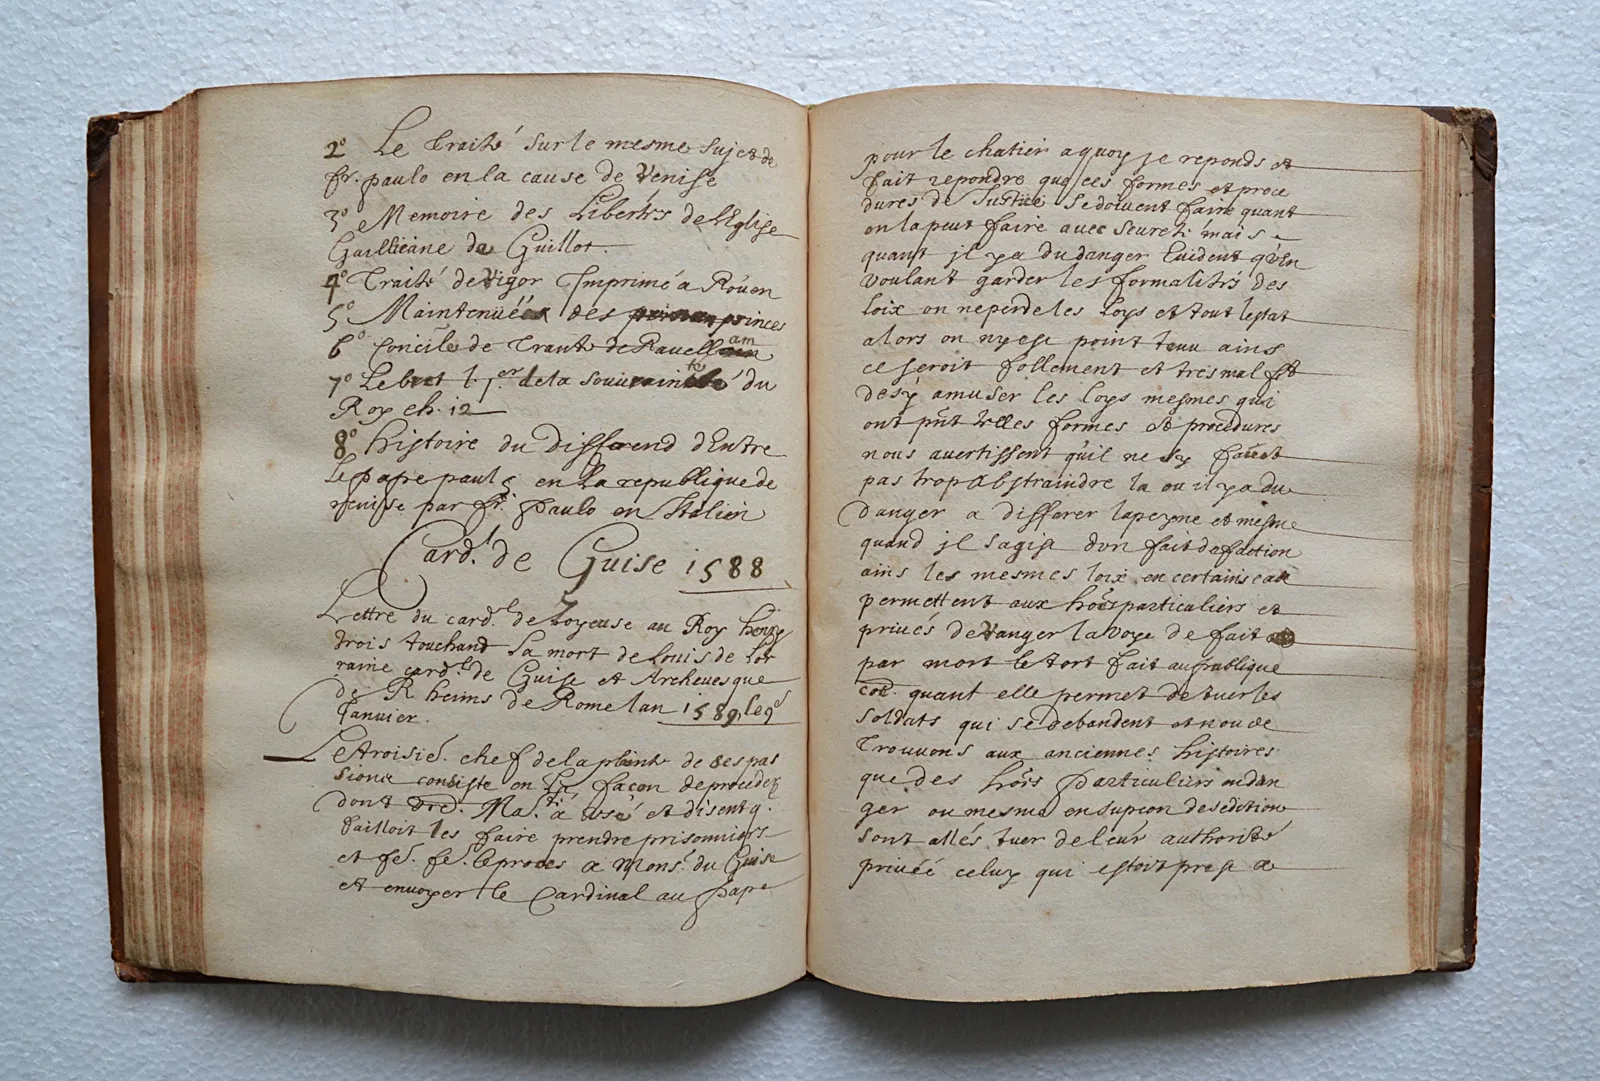 2° Le Traité sur le mesme sujet de
fr. paulo en la cause de Venise
3° Memoire des Libertés de l'Eglise
Gallicane de Guillot
4° Traité de Vigor Imprimé a Rouen
5° Maintenuée des princes
6° Concile de Trante de Ravell am
7° Lebret l. 1.er de la souvraineté du
Roy ch. 12
8° histoire du Differend d'Entre
le pape paul 5 en la republique de
venise par fr. Paulo en Italien
Card.l de Guise 1588
Lettre du card.l de Joyeuse au Roy henry
trois touchant sa mort de Louis de Lor
raine card.l de Guise et Archevesque
de Rheims de Rome l'an 1589, le 9e
Janvier.
Le troisie. chef de la plainte de ses pas
sions consiste en la façon de proceder
dont vre. Ma.té a usé et disent q.
failloit les faire prendre prisonniers
et fe. fe. le proces a Mons. du Guise
et envoyer le Cardinal au pape
pour le chatier a quoy je reponds et
fait repondre que ces formes et proce
dures de Justice se doivent faire quant
on la peut faire avec seureté mais
quant jl y a du danger Evident q'En
voulant garder les formalités des
Loix on ne perde les Loys et tout l'estat
alors on n'y est point tenu ains
ce seroit follement et tres mal fet
de s'y amuser les Loys mesmes qui
ont pnt telles formes et procedures
nous avertissent qu'il ne s'y faut
pas trop abstraindre la ou il y a du
danger a differer la peyne et mesme
quand jl s'agist d'un fait de faction
ains les mesmes loix en certains cas
permettent aux hoes particuliers et
privés de vanger la voye de fait
par mort le tort fait au publique
coe. quant elle permet de tuer les
soldats qui se debandent et nou de
Trouvons aux anciennes histoires
que des hoes particuliers en dan
ger ou mesme en supçon de sedition
sont allés tuer de leur authorité
privée celuy qui estoit prest a